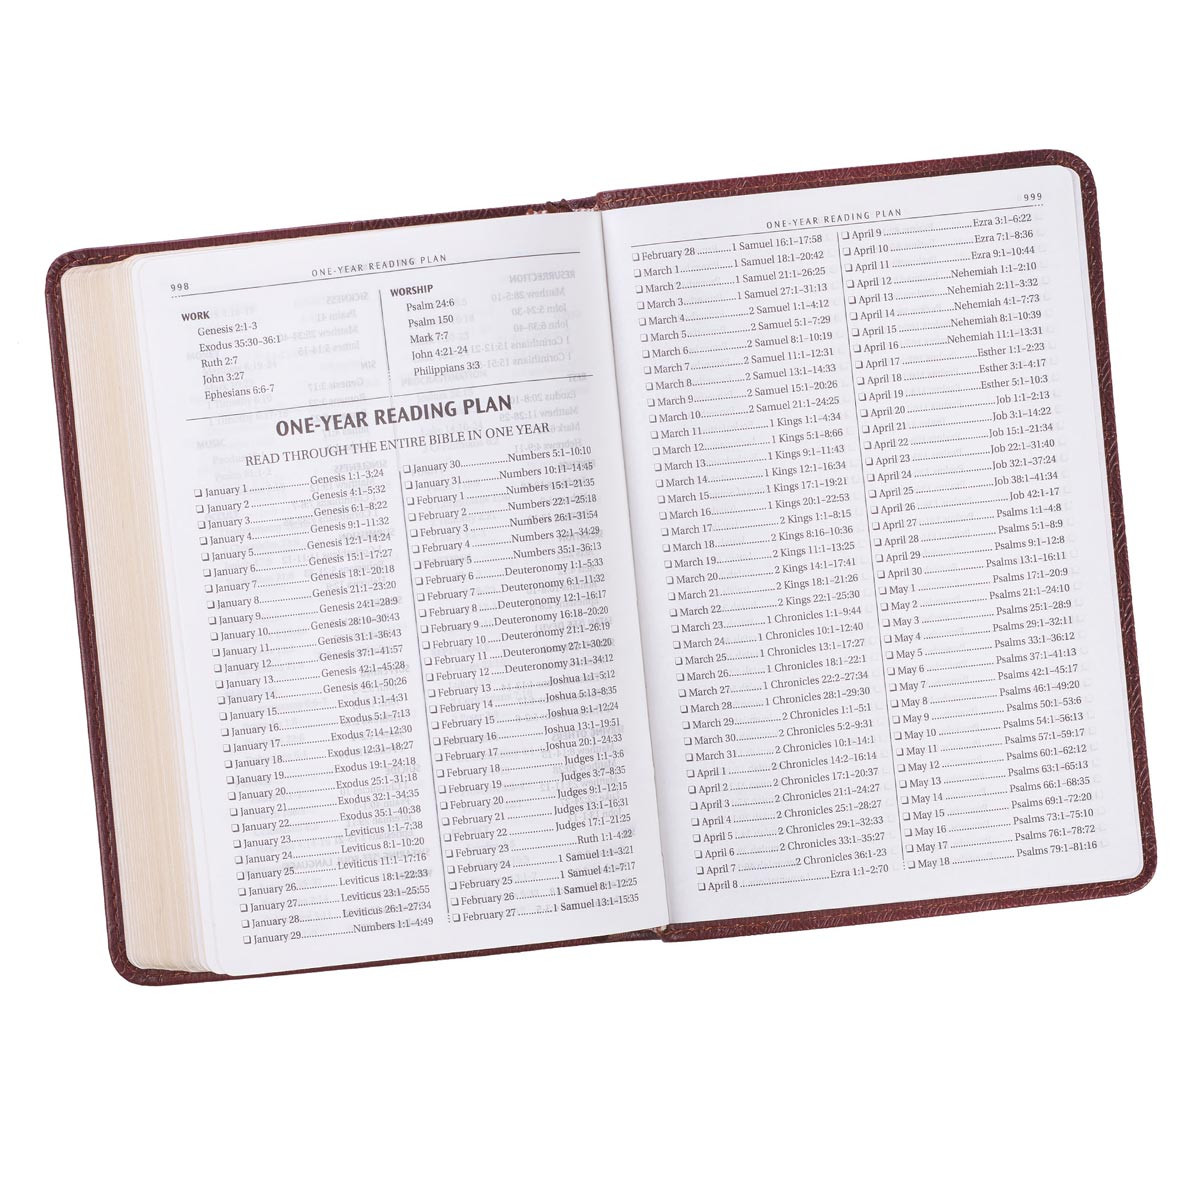 998
ONE-YEAR READING PLAN
WORK
Genesis 2:1-3
Exodus 35:30–36:1
Ruth 2:7
John 3:27
Ephesians 6:6-7
WORSHIP
Psalm 24:6
Psalm 150
Mark 7:7
John 4:21-24
Philippians 3:3
ONE-YEAR READING PLAN
READ THROUGH THE ENTIRE BIBLE IN ONE YEAR
❏ January 1 Genesis 1:1–3:24
❏ January 2 Genesis 4:1–5:32
❏ January 3 Genesis 6:1–8:22
❏ January 4 Genesis 9:1–11:32
❏ January 5 Genesis 12:1–14:24
❏ January 6 Genesis 15:1–17:27
❏ January 7 Genesis 18:1–20:18
❏ January 8 Genesis 21:1–23:20
❏ January 9 Genesis 24:1–28:9
❏ January 10 Genesis 28:10–30:43
❏ January 11 Genesis 31:1–36:43
❏ January 12 Genesis 37:1–41:57
❏ January 13 Genesis 42:1–45:28
❏ January 14 Genesis 46:1–50:26
❏ January 15 Exodus 1:1–4:31
❏ January 16 Exodus 5:1–7:13
❏ January 17 Exodus 7:14–12:30
❏ January 18 Exodus 12:31–18:27
❏ January 19 Exodus 19:1–24:18
❏ January 20 Exodus 25:1–31:18
❏ January 21 Exodus 32:1–34:35
❏ January 22 Exodus 35:1–40:38
❏ January 23 Leviticus 1:1–7:38
❏ January 24 Leviticus 8:1–10:20
❏ January 25 Leviticus 11:1–17:16
❏ January 26 Leviticus 18:1–22:33
❏ January 27 Leviticus 23:1–25:55
❏ January 28 Leviticus 26:1–27:34
❏ January 29 Numbers 1:1–4:49
❏ January 30 Numbers 5:1–10:10
❏ January 31 Numbers 10:11–14:45
❏ February 1 Numbers 15:1–21:35
❏ February 2 Numbers 22:1–25:18
❏ February 3 Numbers 26:1–31:54
❏ February 4 Numbers 32:1–34:29
❏ February 5 Numbers 35:1–36:13
❏ February 6 Deuteronomy 1:1–5:33
❏ February 7 Deuteronomy 6:1–11:32
❏ February 8 Deuteronomy 12:1–16:17
❏ February 9 Deuteronomy 16:18–20:20
❏ February 10 Deuteronomy 21:1–26:19
❏ February 11 Deuteronomy 27:1–30:20
❏ February 12 Deuteronomy 31:1–34:12
❏ February 13 Joshua 1:1–5:12
❏ February 14 Joshua 5:13–8:35
❏ February 15 Joshua 9:1–12:24
❏ February 16 Joshua 13:1–19:51
❏ February 17 Joshua 20:1–24:33
❏ February 18 Judges 1:1–3:6
❏ February 19 Judges 3:7–8:35
❏ February 20 Judges 9:1–12:15
❏ February 21 Judges 13:1–16:31
❏ February 22 Judges 17:1–21:25
❏ February 23 Ruth 1:1–4:22
❏ February 24 1 Samuel 1:1–3:21
❏ February 25 1 Samuel 4:1–7:17
❏ February 26 1 Samuel 8:1–12:25
❏ February 27 1 Samuel 13:1–15:35
ONE-YEAR READING PLAN
999
❏ February 28 1 Samuel 16:1–17:58
❏ March 1 1 Samuel 18:1–20:42
❏ March 2 1 Samuel 21:1–26:25
❏ March 3 1 Samuel 27:1–31:13
❏ March 4 2 Samuel 1:1–4:12
❏ March 5 2 Samuel 5:1–7:29
❏ March 6 2 Samuel 8:1–10:19
❏ March 7 2 Samuel 11:1–12:31
❏ March 8 2 Samuel 13:1–14:33
❏ March 9 2 Samuel 15:1–20:26
❏ March 10 2 Samuel 21:1–24:25
❏ March 11 1 Kings 1:1–4:34
❏ March 12 1 Kings 5:1–8:66
❏ March 13 1 Kings 9:1–11:43
❏ March 14 1 Kings 12:1–16:34
❏ March 15 1 Kings 17:1–19:21
❏ March 16 1 Kings 20:1–22:53
❏ March 17 2 Kings 1:1–8:15
❏ March 18 2 Kings 8:16–10:36
❏ March 19 2 Kings 11:1–13:25
❏ March 20 2 Kings 14:1–17:41
❏ March 21 2 Kings 18:1–21:26
❏ March 22 2 Kings 22:1–25:30
❏ March 23 1 Chronicles 1:1–9:44
❏ March 24 1 Chronicles 10:1–12:40
❏ March 25 1 Chronicles 13:1–17:27
❏ March 26 1 Chronicles 18:1–22:1
❏ March 27 1 Chronicles 22:2–27:34
❏ March 28 1 Chronicles 28:1–29:30
❏ March 29 2 Chronicles 1:1–5:1
❏ March 30 2 Chronicles 5:2–9:31
❏ March 31 2 Chronicles 10:1–14:1
❏ April 1 2 Chronicles 14:2–16:14
❏ April 2 2 Chronicles 17:1–20:37
❏ April 3 2 Chronicles 21:1–24:27
❏ April 4 2 Chronicles 25:1–28:27
❏ April 5 2 Chronicles 29:1–32:33
❏ April 6 2 Chronicles 33:1–35:27
❏ April 7 2 Chronicles 36:1–23
❏ April 8 Ezra 1:1–2:70
❏ April 9 Ezra 3:1–6:22
❏ April 10 Ezra 7:1–8:36
❏ April 11 Ezra 9:1–10:44
❏ April 12 Nehemiah 1:1–2:10
❏ April 13 Nehemiah 2:11–3:32
❏ April 14 Nehemiah 4:1–7:73
❏ April 15 Nehemiah 8:1–10:39
❏ April 16 Nehemiah 11:1–13:31
❏ April 17 Esther 1:1–2:23
❏ April 18 Esther 3:1–4:17
❏ April 19 Esther 5:1–10:3
❏ April 20 Job 1:1–2:13
❏ April 21 Job 3:1–14:22
❏ April 22 Job 15:1–21:34
❏ April 23 Job 22:1–31:40
❏ April 24 Job 32:1–37:24
❏ April 25 Job 38:1–41:34
❏ April 26 Job 42:1–17
❏ April 27 Psalms 1:1–4:8
❏ April 28 Psalms 5:1–8:9
❏ April 29 Psalms 9:1–12:8
❏ April 30 Psalms 13:1–16:11
❏ May 1 Psalms 17:1–20:9
❏ May 2 Psalms 21:1–24:10
❏ May 3 Psalms 25:1–28:9
❏ May 4 Psalms 29:1–32:11
❏ May 5 Psalms 33:1–36:12
❏ May 6 Psalms 37:1–41:13
❏ May 7 Psalms 42:1–45:17
❏ May 8 Psalms 46:1–49:20
❏ May 9 Psalms 50:1–53:6
❏ May 10 Psalms 54:1–56:13
❏ May 11 Psalms 57:1–59:17
❏ May 12 Psalms 60:1–62:12
❏ May 13 Psalms 63:1–65:13
❏ May 14 Psalms 66:1–68:35
❏ May 15 Psalms 69:1–72:20
❏ May 16 Psalms 73:1–75:10
❏ May 17 Psalms 76:1–78:72
❏ May 18 Psalms 79:1–81:16